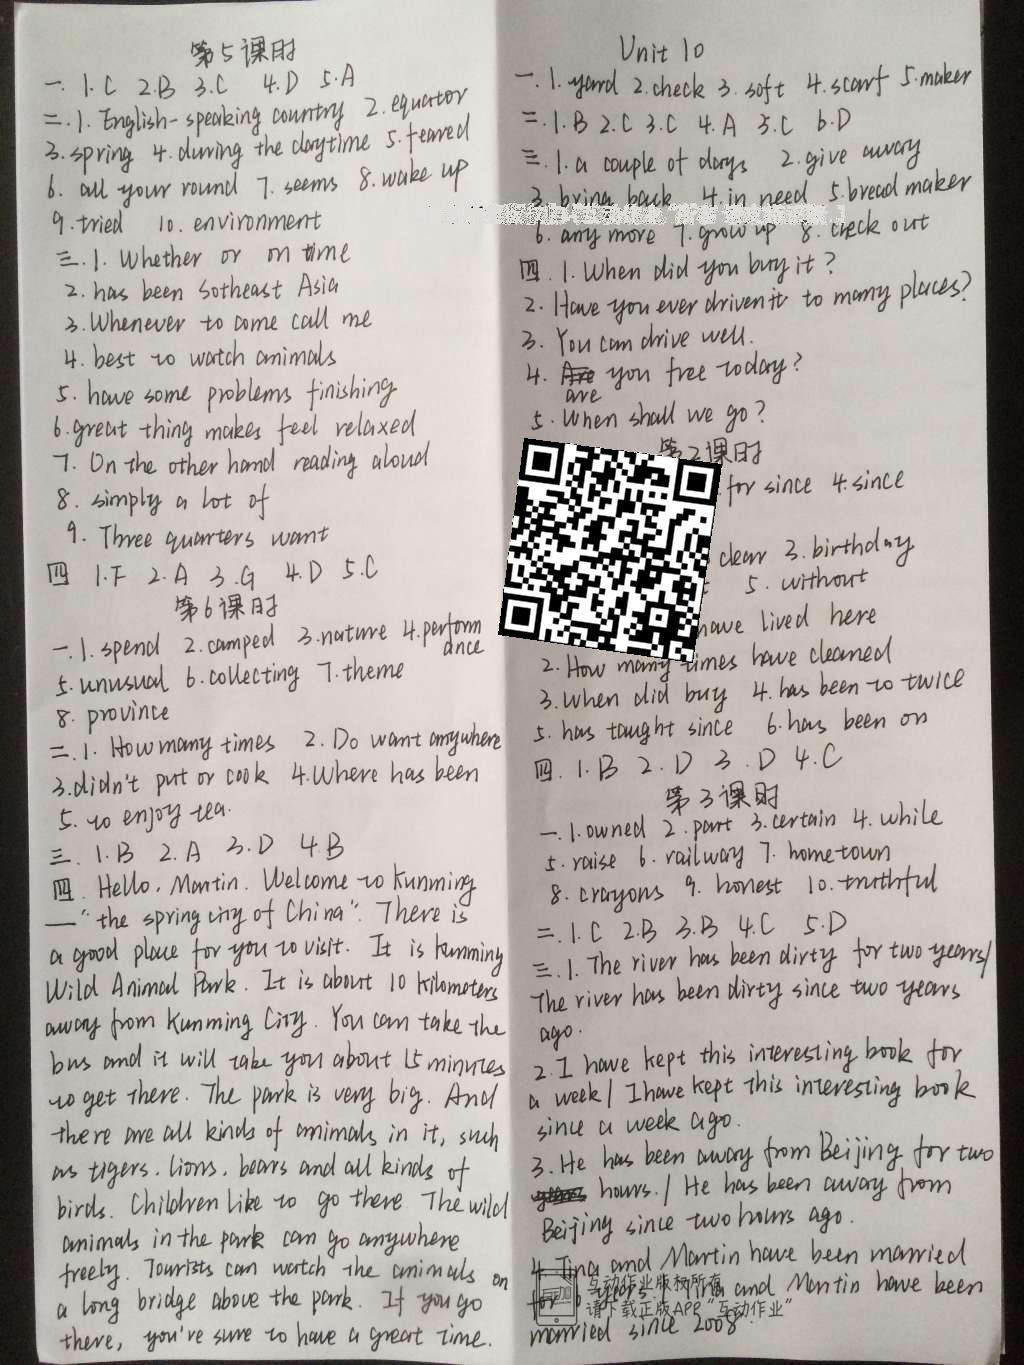 第5课时
一. 1.C 2.B 3.C 4.D 5.A
二.1. English-speaking country 2.equator
3.spring 4.during the daytime 5.feared
6. all your round 7.seems 8.wake up
9.tried 10. environment
三.1. Whether or on time
2.has been Sotheast Asia
3.Whenever to come call me
4.best to watch animals
5.have some problems finishing
6.great thing makes feel relaxed
7. On the other hand reading aloud
8. simply a lot of
9. Three quarters want
四 1.F 2.A 3.G 4.D 5.C
第6课时
一.1.spend 2.camped 3.nature 4.performance
5.unusual 6.collecting 7.theme
8.province
二.1. How many times 2. Do want anywhere
3.didn't put or cook 4.Where has been
5. to enjoy tea.
三. 1.B 2.A 3.D 4.B
四. Hello, Martin. Welcome to Kunming
—"the spring city of China". There is
a good place for you to visit. It is Kunming
Wild Animal Park. It is about 10 kilometers
away from Kunming City. You can take the
bus and it will take you about 15 minutes
to get there. The park is very big. And
there are all kinds of animals in it, such
as tigers, lions, bears and all kinds of
birds. Children like to go there. The wild
animals in the park can go anywhere
freely. Tourists can watch the animals on
a long bridge above the park. If you go
there, you're sure to have a great time.
Unit 10
一.1.yard 2.check 3.soft 4.scarf 5.maker
二.1.B 2.C 3.C 4.A 5.C 6.D
三.1.a couple of days 2.give away
3.bring back 4.in need 5.bread maker
6. any more 7.grow up 8. check out
四 1.When did you buy it?
2. Have you ever driven it to many places?
3. You can drive well.
4. are you free today?
5. When shall we go?
第2课时
for since 4.since
clear 3.birthday
5. without
have lived here
2. How many times have cleaned
3.When did buy 4.has been to twice
5. has taught since 6.has been on
四. 1.B 2.D 3.D 4.C
第3课时
一.1.owned 2.part 3.certain 4.while
5. raise 6. railway 7. hometown
8. crayons 9. honest 10.truthful
二.1.C 2.B 3.B 4.C 5.D
三.1. The river has been dirty for two years/
The river has been dirty since two years
ago.
2.I have kept this interesting book for
a week/ I have kept this interesting book
since a week ago.
3. He has been away from Beijing for two
hours./ He has been away from
Beijing since two hours ago.
4. Tina and Martin have been married
for 6 years./ Tina and Martin have been
married since 2008.
互动作业版权所有
请下载正版APP"互动作业"